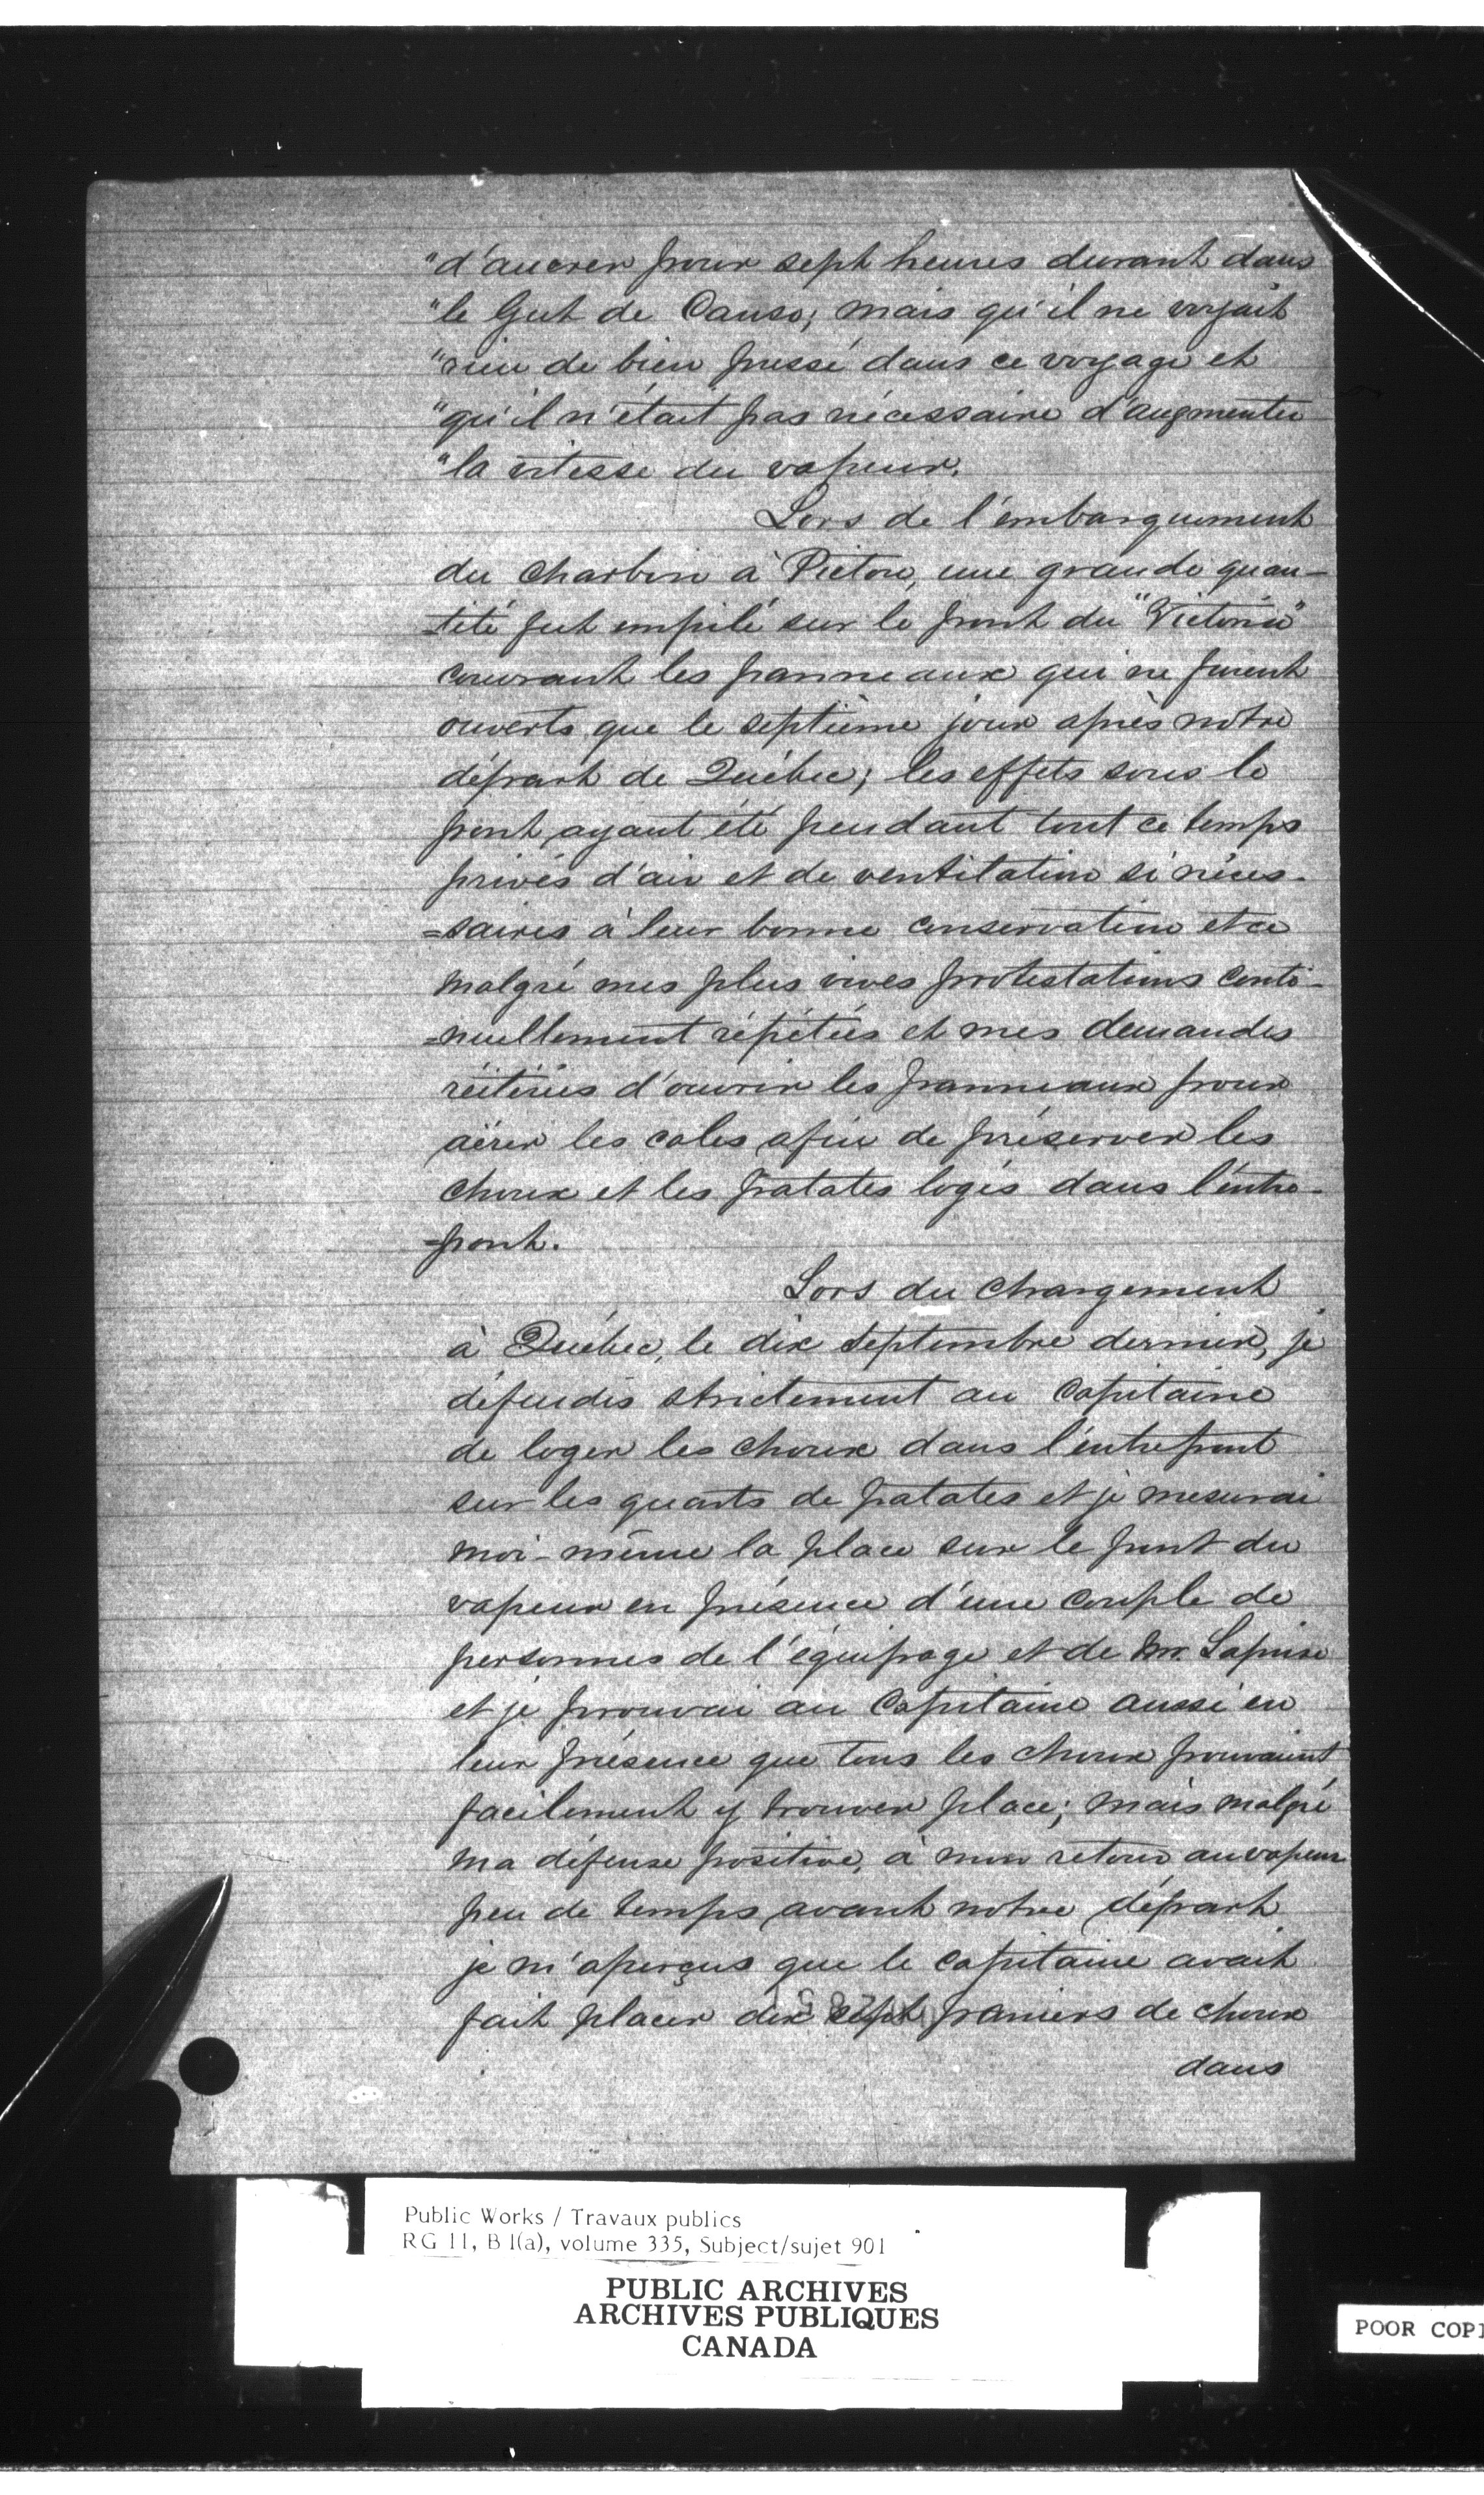 "d'ancrer pour sept heures durant dans
"le Gut de Canso; mais qu'il ne voyait
"rien de bien pressé dans ce voyage et
"qu'il n'était pas nécessaire d'augmenter
"la vitesse du vapeur.
Lors de l'embarquement
du charbon à Pictou, une grande quan-
-tité fut empilé sur le pont du "Victoria"
couvrant les panneaux qui ne furent
ouverts que le septième jour après notre
départ de Québec; les effets sous le
pont ayant été pendant tout ce temps
privés d'air et de ventilation si néces-
=saires à leur bonne conservation et ce
malgré mes plus vives protestations conti-
=nuellement répétées et mes demandes
réitérées d'ouvrir les panneaux pour
aérer les cales afin de préserver les
choux et les patates logés dans l'entre-
=pont.
Lors du chargement
à Québec, le dix septembre dernier, je
défendis strictement au Capitaine
de loger les choux dans l'entrepont
sur les quarts de patates et je mesurai
moi-même la place sur le pont du
vapeur en présence d'une couple de
personnes de l'équipage et de Mr. Laprise
et je prouvai au Capitaine aussi en
leur présence que tous les choux pouvaient
facilement y trouver place; mais malgré
ma défense positive, à mon retour au vapeur
peu de temps avant notre départ
je m'aperçus que le capitaine avait
fait placer dix sept paniers de choux
dans
Public Works / Travaux publics
RG 11, B 1(a), volume 335, Subject/sujet 901
PUBLIC ARCHIVES
ARCHIVES PUBLIQUES
CANADA
POOR COPI